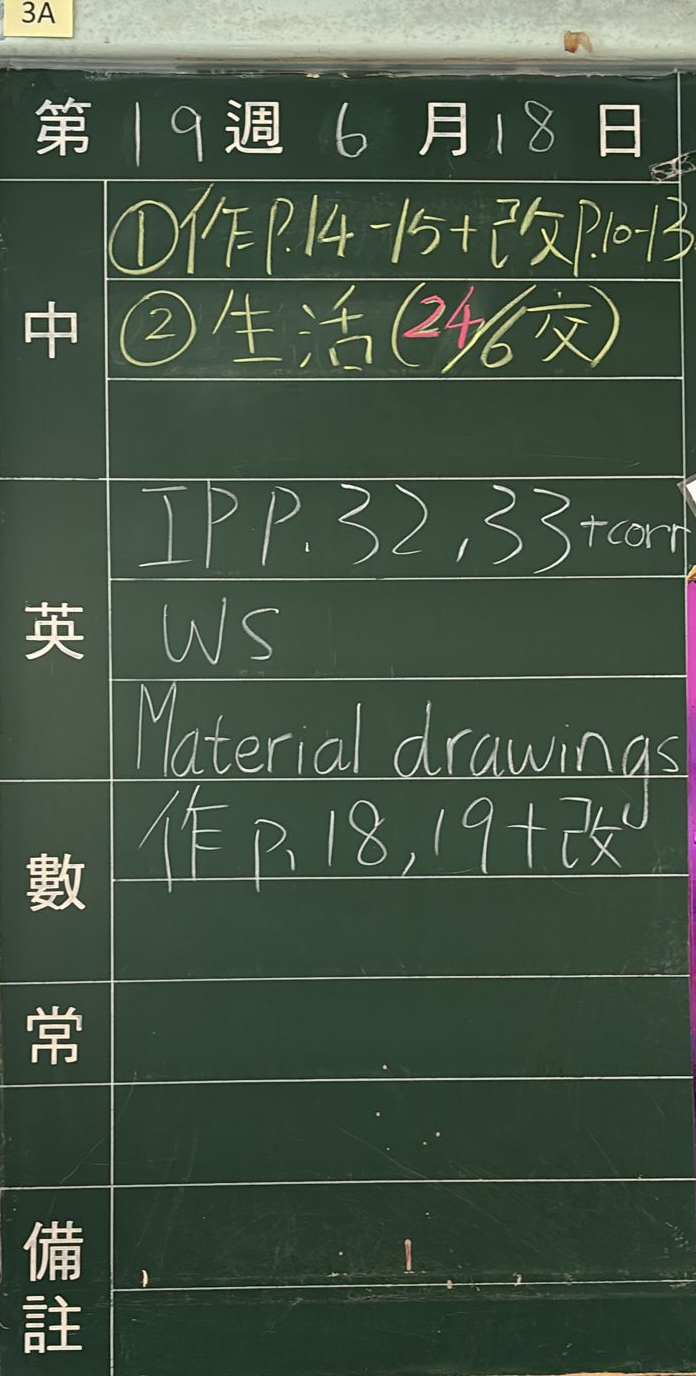 3A
第 19 週 6 月 18 日
中
①作P.14-15+改P.10-13
②生活(24/6交)
英
IP P.32,33+corr
WS
Material drawings
數
作p.18,19+改
常
備註